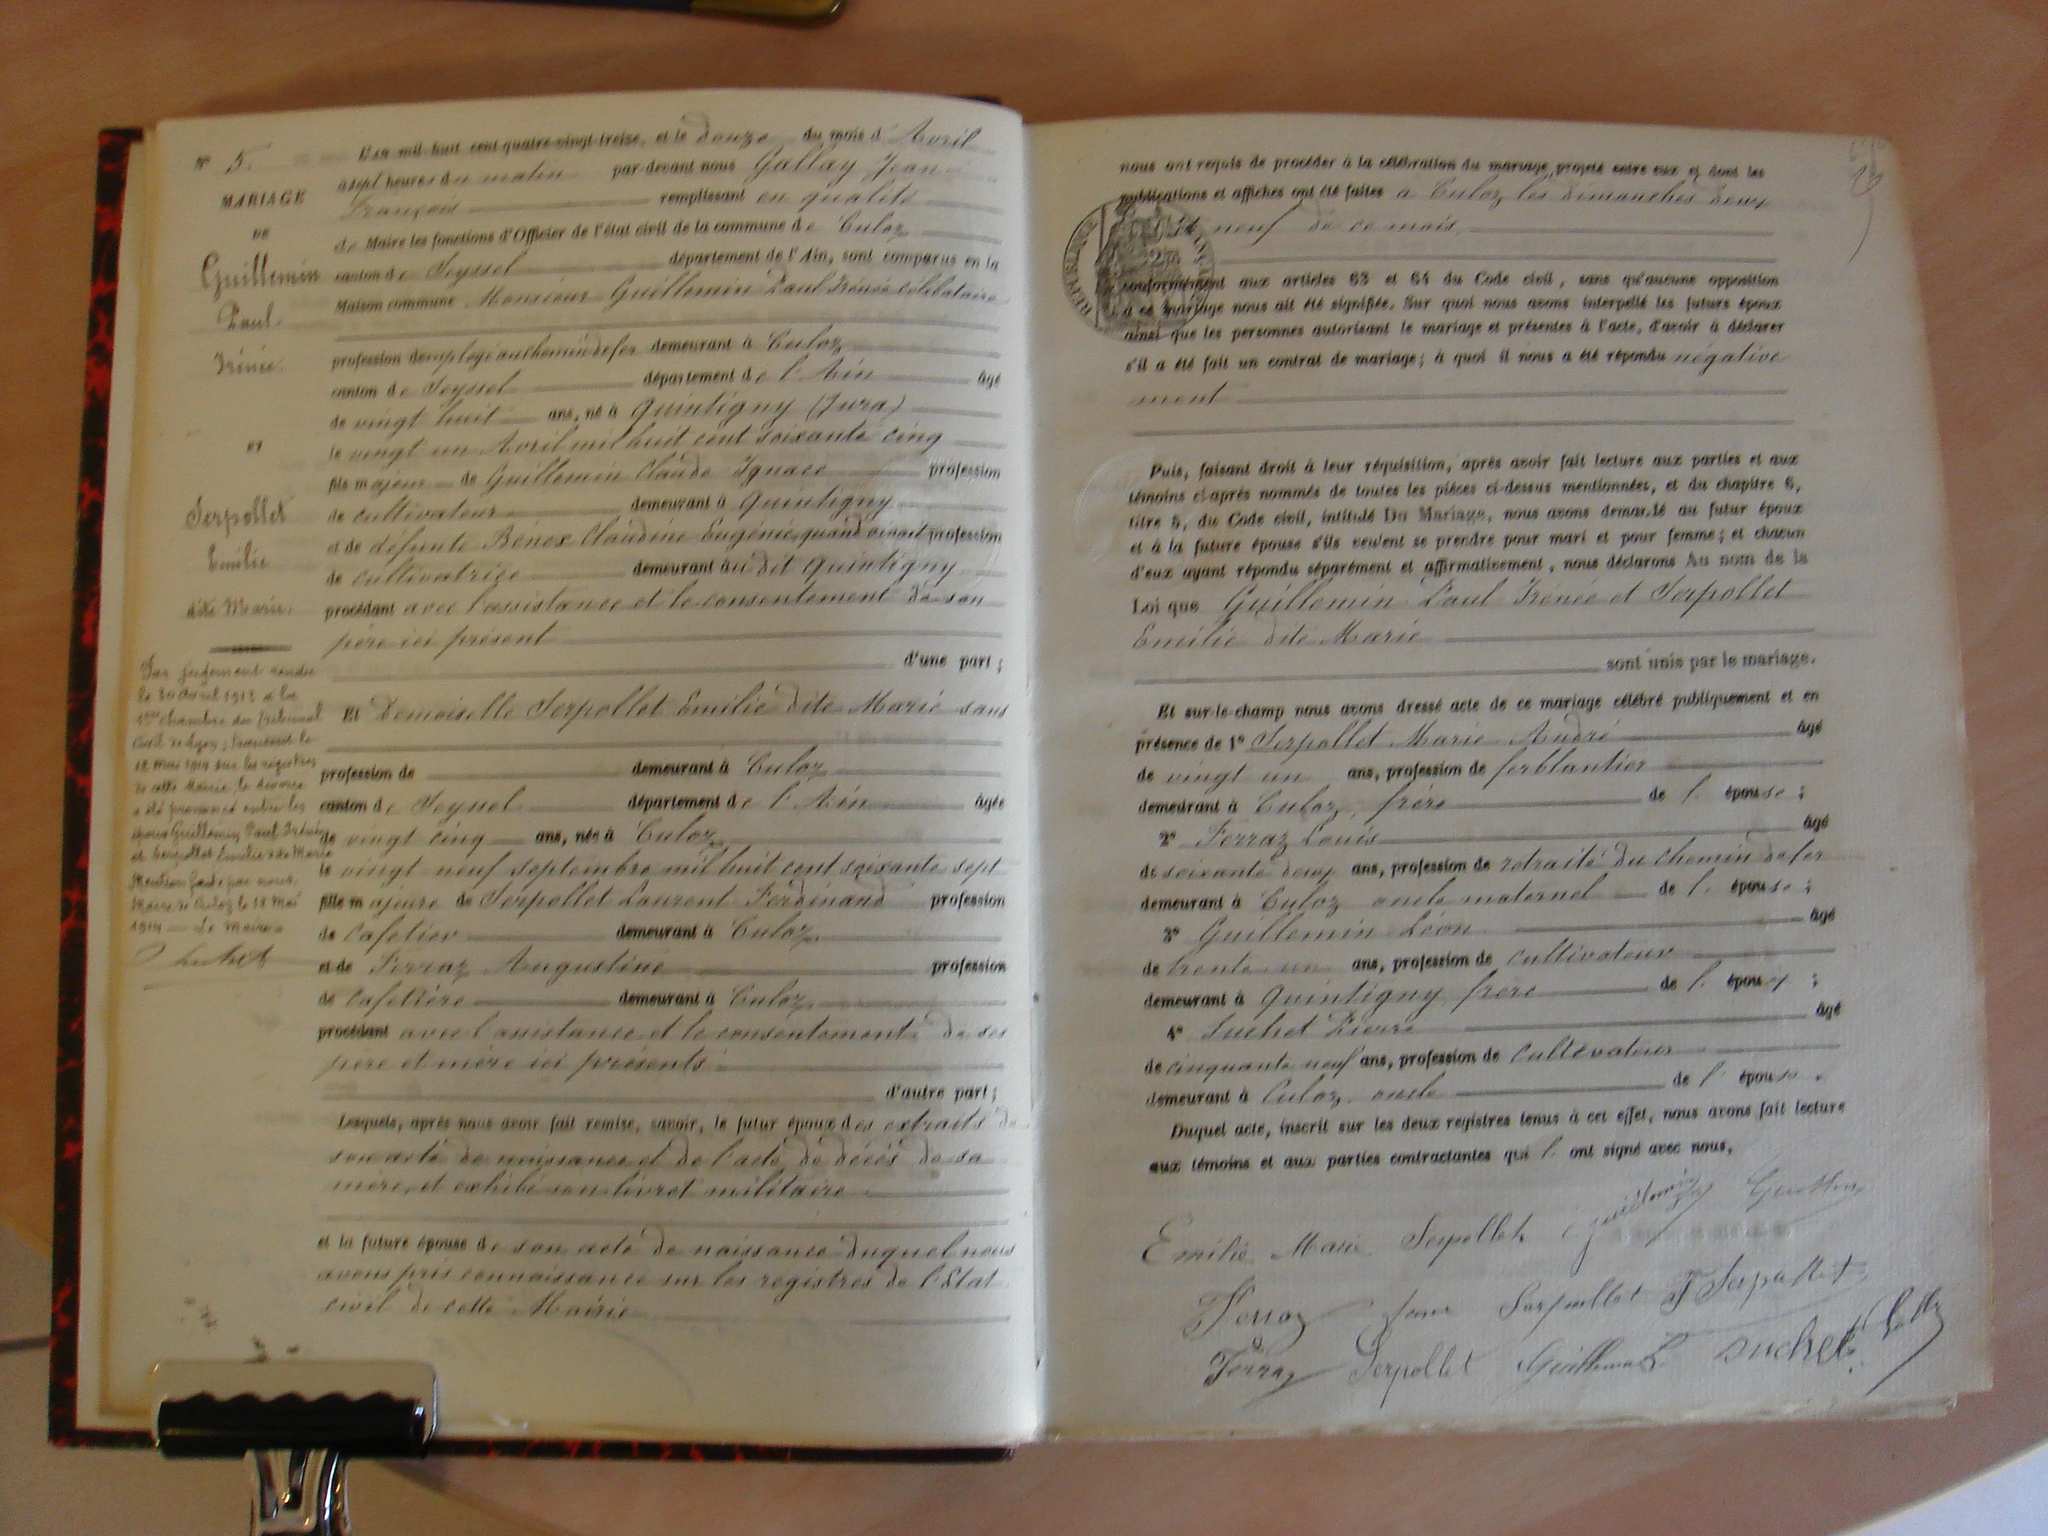 N° 5.
MARIAGE
DE
Guillemin
Paul
Irénée
ET
Serpollet
Emilie
dite Marie.
Par jugement rendu
le 30 Avril 1913 à la
1ère chambre du Tribunal
Civil de Lyon; transcrit le
18 mai 1914 sur les registres
de cette Mairie, le divorce
a été prononcé entre les
époux Guillemin Paul Irénée
et Serpollet Emilie dite Marie
Mention faite par nous
Maire de Culoz le 18 Mai
1914 — Le Maire
L'an mil huit cent quatre-vingt-treize, et le douze du mois d'Avril
à sept heures du matin par-devant nous Gallay Jean
François remplissant en qualité
de Maire les fonctions d'Officier de l'état civil de la commune de Culoz
canton de Seyssel département de l'Ain, sont comparus en la
Maison commune Monsieur Guillemin Paul Irénée célibataire
profession d'employé au chemin de fer demeurant à Culoz
canton de Seyssel département de l'Ain âgé
de vingt huit ans, né à Quintigny (Jura)
le vingt un Avril mil huit cent soixante cinq
fils majeur de Guillemin Claude Ignace profession
de cultivateur demeurant à Quintigny
et de défunte Benex Claudine Eugénie, quand vivait profession
de cultivatrice demeurant au dit Quintigny
procédant avec l'assistance et le consentement de son
père ici présent
d'une part;
Et Demoiselle Serpollet Emilie dite Marie sans
profession de demeurant à Culoz
canton de Seyssel département de l'Ain âgée
de vingt cinq ans, née à Culoz
le vingt neuf septembre mil huit cent soixante sept
fille majeure de Serpollet Laurent Ferdinand profession
de cafetier demeurant à Culoz
et de Ferraz Augustine profession
de cafetière demeurant à Culoz
procédant avec l'assistance et le consentement de ses
père et mère ici présents
d'autre part;
Lesquels, après nous avoir fait remise, savoir, le futur époux des extraits de
son acte de naissance et de l'acte de décès de sa
mère, et exhibé son livret militaire
et la future épouse de son acte de naissance duquel nous
avons pris connaissance sur les registres de l'Etat
civil de cette Mairie
nous ont requis de procéder à la célébration du mariage projeté entre eux et dont les
publications et affiches ont été faites à Culoz les dimanches deux
et neuf de ce mois
conformément aux articles 63 et 64 du Code civil, sans qu'aucune opposition
à ce mariage nous ait été signifiée. Sur quoi nous avons interpellé les futurs époux
ainsi que les personnes autorisant le mariage et présentes à l'acte, d'avoir à déclarer
s'il a été fait un contrat de mariage; à quoi il nous a été répondu négative
ment
Puis, faisant droit à leur réquisition, après avoir fait lecture aux parties et aux
témoins ci-après nommés de toutes les pièces ci-dessus mentionnées, et du chapitre 6,
titre 5, du Code civil, intitulé Du Mariage, nous avons demandé au futur époux
et à la future épouse s'ils veulent se prendre pour mari et pour femme; et chacun
d'eux ayant répondu séparément et affirmativement, nous déclarons Au nom de la
Loi que Guillemin Paul Irénée et Serpollet
Emilie dite Marie
sont unis par le mariage.
Et sur-le-champ nous avons dressé acte de ce mariage célébré publiquement et en
présence de 1° Serpollet Marie André âgé
de vingt un ans, profession de ferblantier
demeurant à Culoz, frère de l'épouse;
2° Ferraz Louis âgé
de soixante deux ans, profession de retraité du chemin de fer
demeurant à Culoz oncle maternel de l'épouse;
3° Guillemin Léon âgé
de trente un ans, profession de cultivateur
demeurant à Quintigny frère de l'époux;
4° Suchet Pierre âgé
de cinquante neuf ans, profession de cultivateur
demeurant à Culoz oncle de l'épouse.
Duquel acte, inscrit sur les deux registres tenus à cet effet, nous avons fait lecture
aux témoins et aux parties contractantes qui l'ont signé avec nous.
Emilie Marie Serpollet Guillemin
Ferraz Serpollet F Serpollet
Ferraz Serpollet Guillemin L Suchet